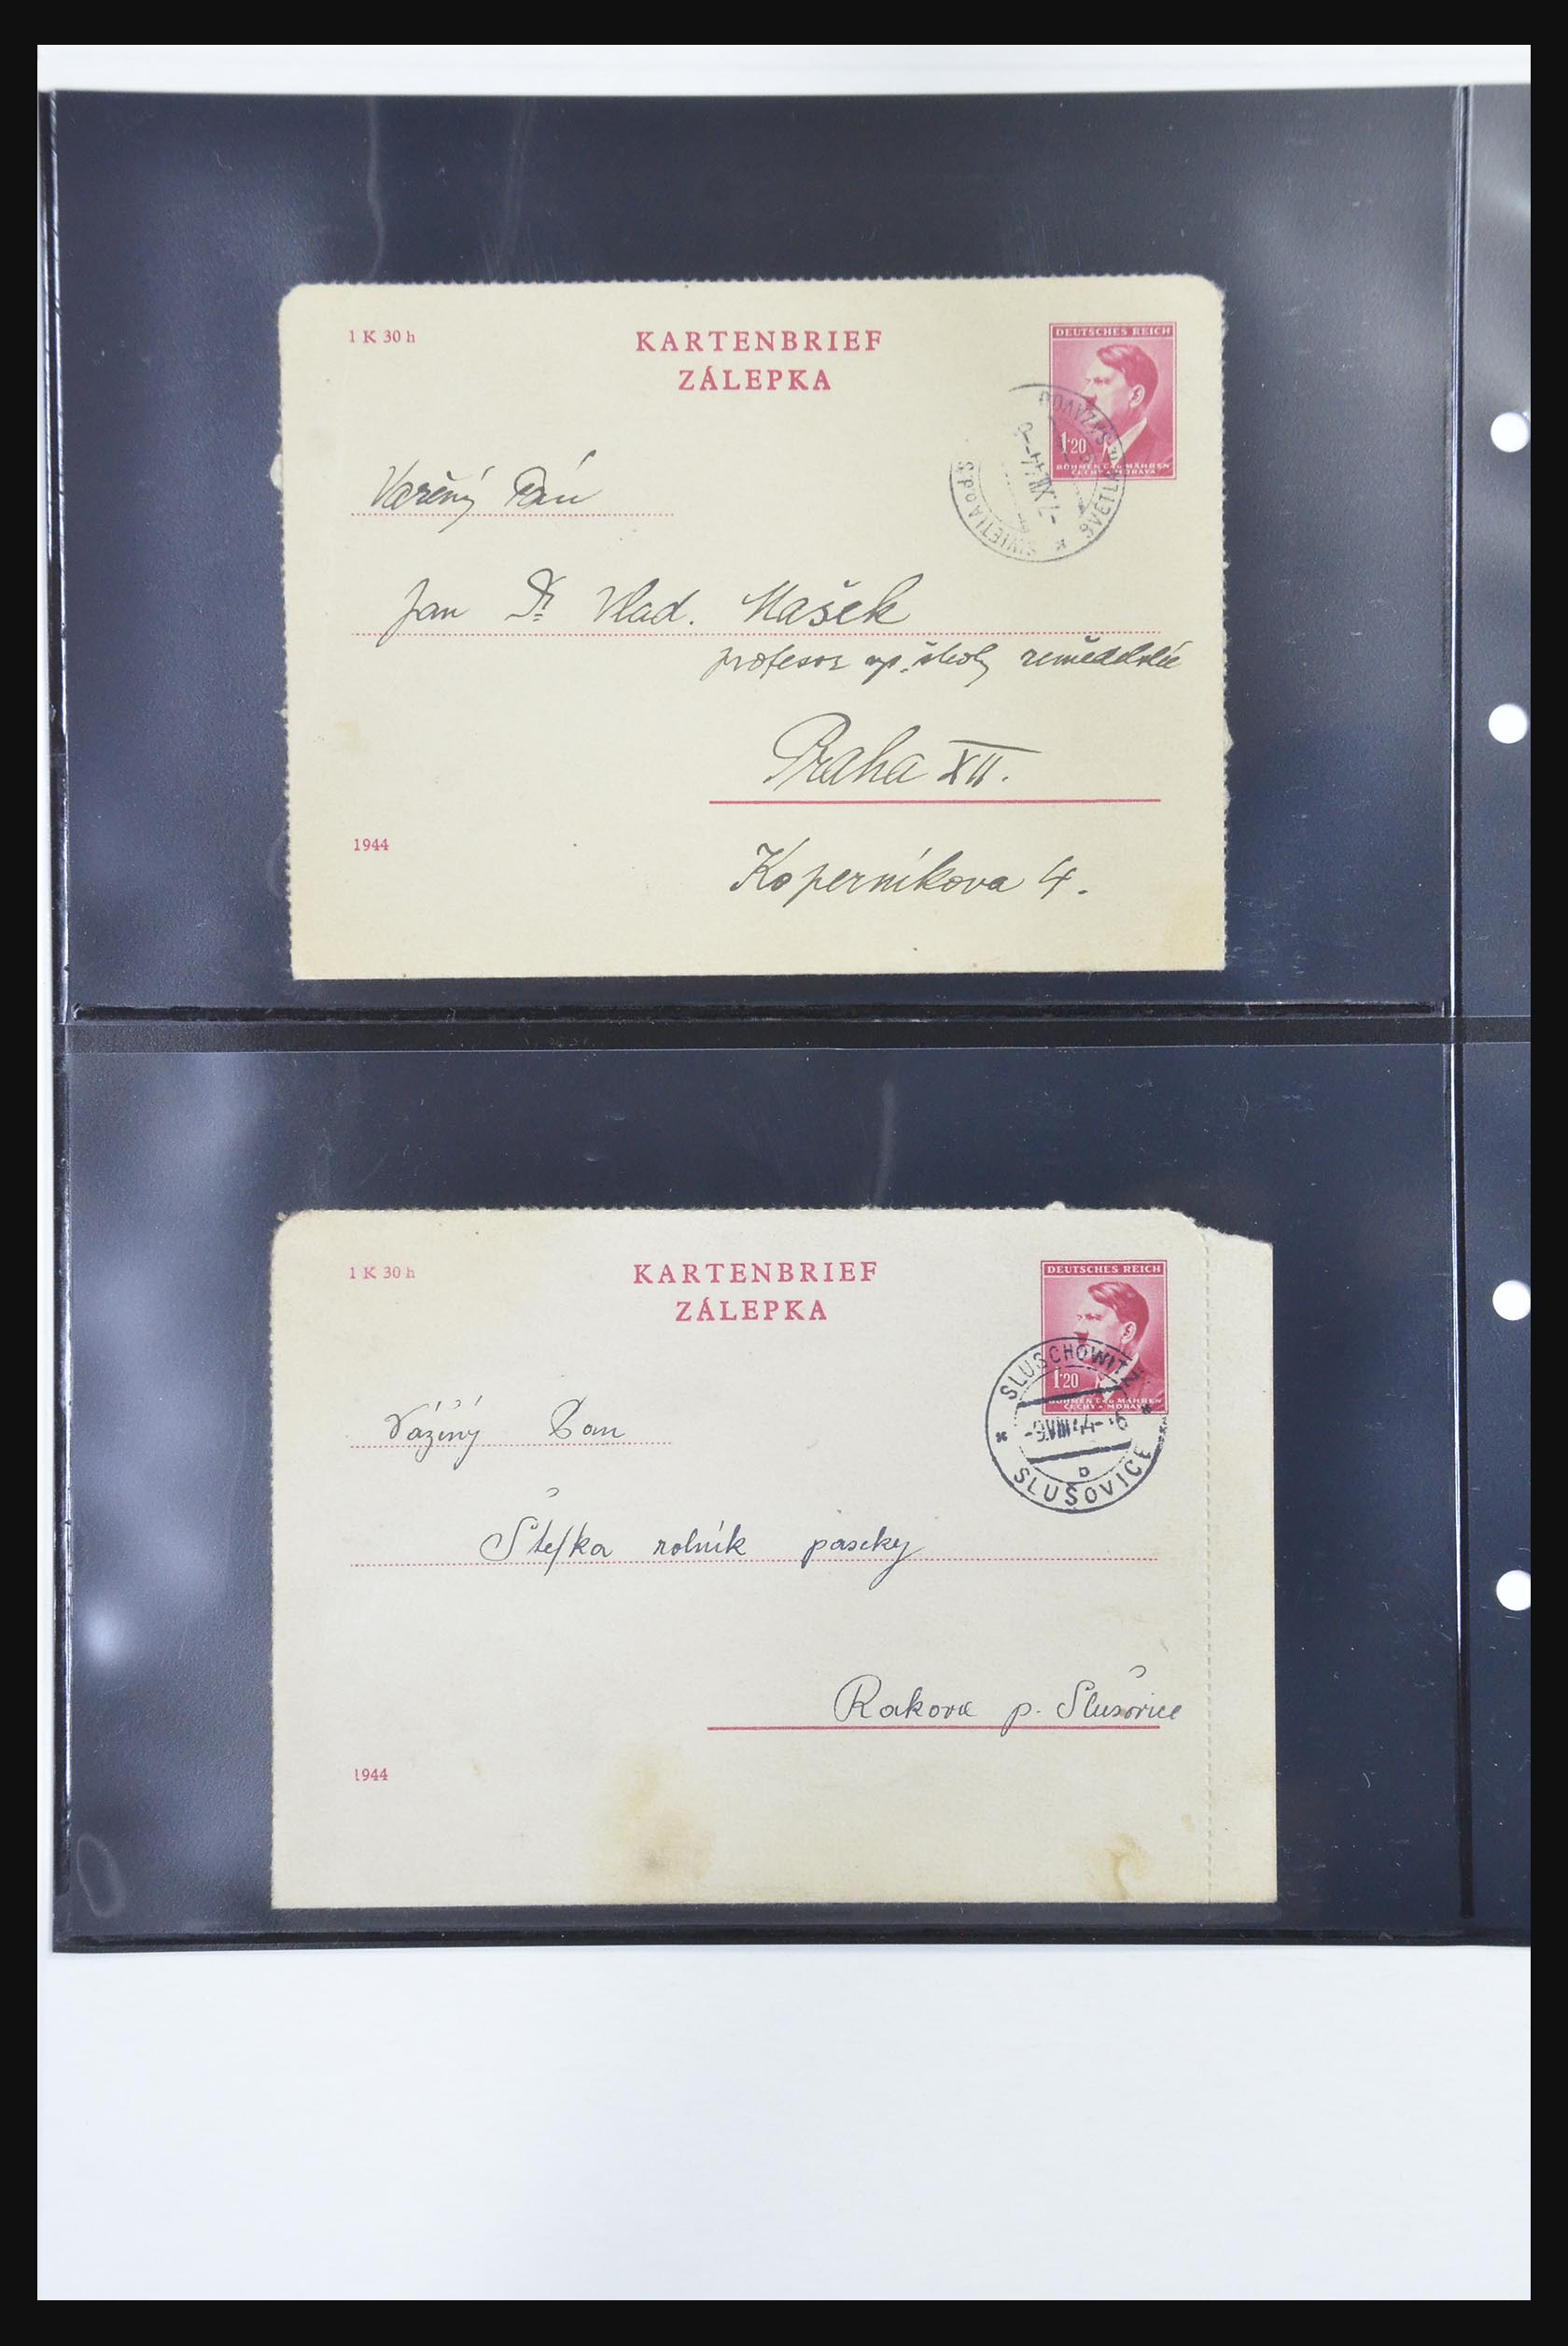 1 K 30 h
KARTENBRIEF
ZÁLEPKA
DEUTSCHES REICH
1·20
BÖHMEN u. MÄHREN
ČECHY a MORAVA
SVĚTLÁ n. SÁZAVOU
-7.XII.44-9
Pán
Jan Dr. Vlad. Mašek
profesor vys. školy zemědělské
Praha XII.
1944
Koperníkova 4.
1 K 30 h
KARTENBRIEF
ZÁLEPKA
DEUTSCHES REICH
1·20
BÖHMEN u. MÄHREN
ČECHY a MORAVA
SLUSCHOWITZ
-9.VIII.44-6
b
SLUŠOVICE
Vážený Pan
Štefka rolník paseky
Rakova p. Slušovice
1944